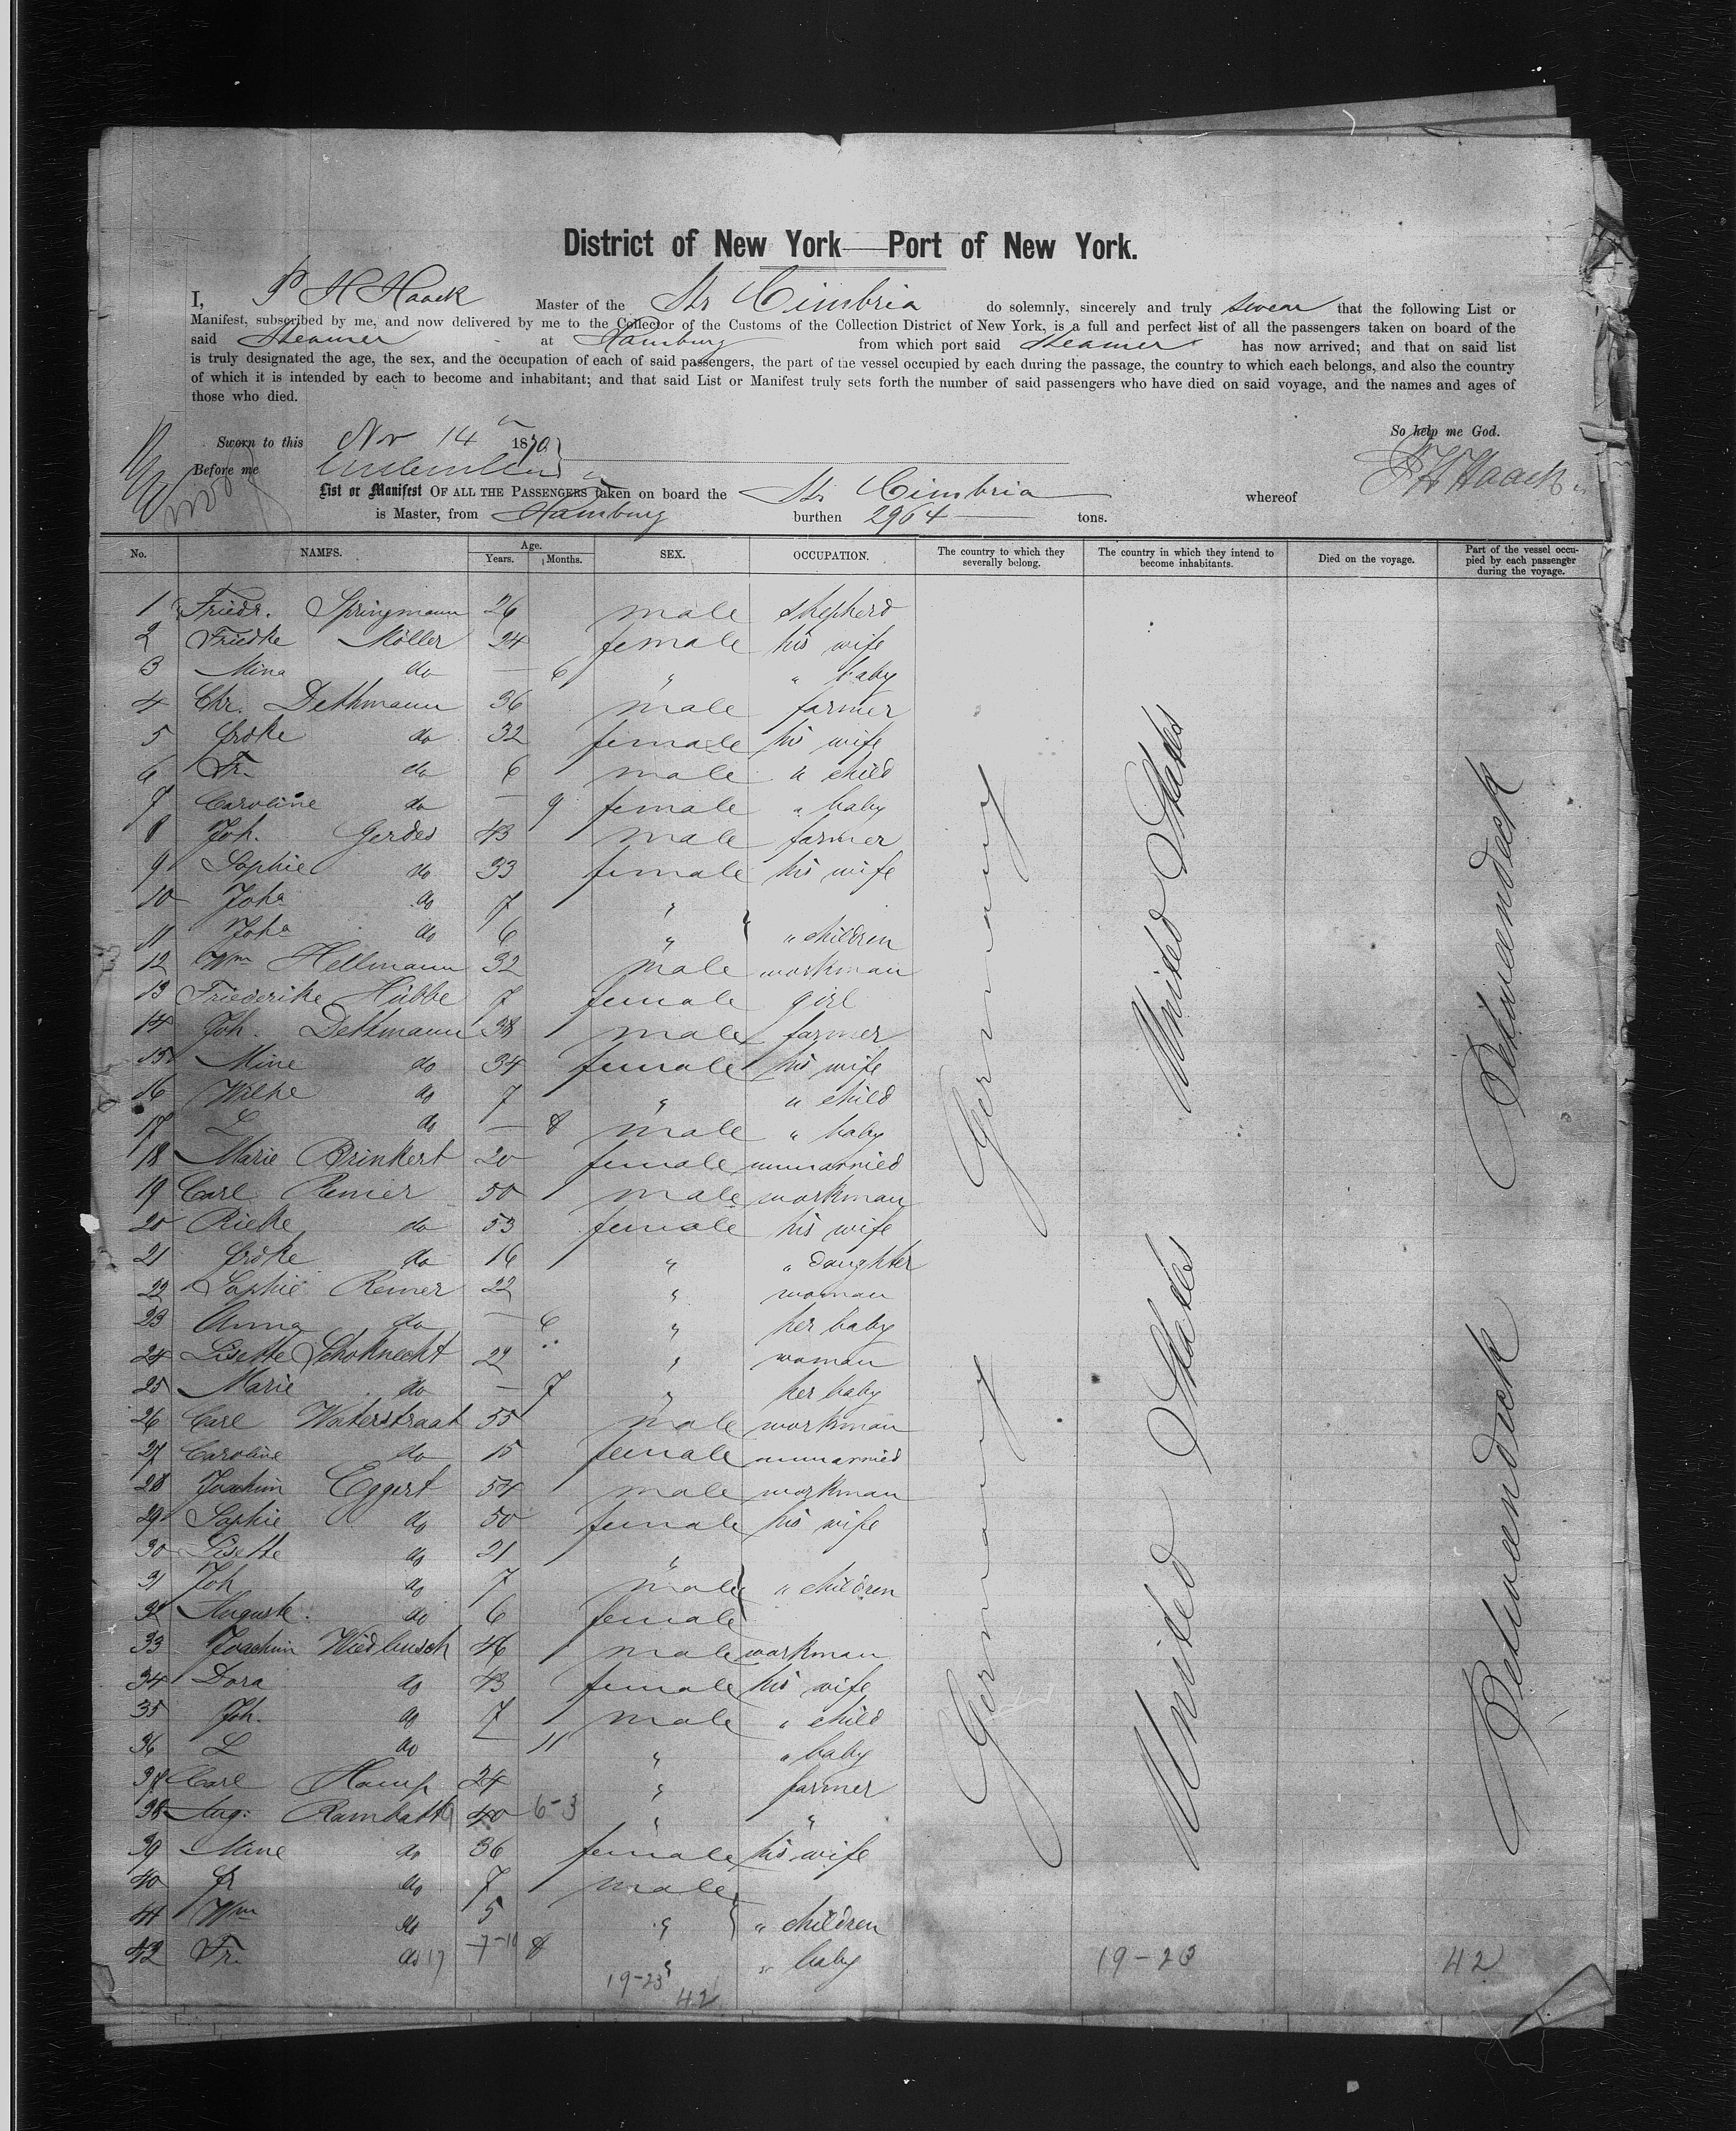 District of New York—Port of New York.
I, P H Haack Master of the Str Cimbria do solemnly, sincerely and truly swear that the following List or
Manifest, subscribed by me, and now delivered by me to the Collector of the Customs of the Collection District of New York, is a full and perfect list of all the passengers taken on board of the
said Steamer at Hamburg from which port said Steamer has now arrived; and that on said list
is truly designated the age, the sex, and the occupation of each of said passengers, the part of the vessel occupied by each during the passage, the country to which each belongs, and also the country
of which it is intended by each to become and inhabitant; and that said List or Manifest truly sets forth the number of said passengers who have died on said voyage, and the names and ages of
those who died.
So help me God.
Sworn to this Nov 14th 1870
Before me
H Haack
List or Manifest OF ALL THE PASSENGERS taken on board the Str Cimbria whereof
is Master, from Hamburg burthen 2964 tons.
No. NAMES. Age. Years. Months. SEX. OCCUPATION. The country to which they severally belong. The country in which they intend to become inhabitants. Died on the voyage. Part of the vessel occupied by each passenger during the voyage.
1 Friedr. Springmann 26 male shepherd
2 Friedke Möller 24 female his wife
3 Mina do — 6 " " baby
4 Chr. Dethmann 36 male farmer
5 Frdke do 32 female his wife
6 Fr. do 6 male " child
7 Caroline do — 9 female " baby
8 Joh. Gerdes 43 male farmer
9 Sophie do 33 female his wife
10 Joha do 7 "
11 Joha do 6 " " children
12 Wm Hellmann 32 male workman
13 Friederike Hübbe 7 female girl
14 Joh. Dethmann 38 male farmer
15 Mine do 34 female his wife
16 Wilhe do 7 " " child
17 L do — 8 male " baby
18 Marie Brinkert 20 female unmarried
19 Carl Remer 50 male workman
20 Rieke do 53 female his wife
21 Frdke do 16 " " daughter
22 Sophie Remer 22 " woman
23 Anna do — 6 " her baby
24 Lisette Schoknecht 22 " woman
25 Marie do — 7 " her baby
26 Carl Waterstraat 55 male workman
27 Caroline do 15 female unmarried
28 Joachim Eggert 54 male workman
29 Sophie do 50 female his wife
30 Lisette do 21 "
31 Joh do 7 male " children
32 Auguste do 6 female
33 Joachim Wiedbusch 46 male workman
34 Dora do 43 female his wife
35 Joh. do 7 male " child
36 L do — 11 " " baby
37 Carl Hamp 24 " farmer
38 Aug. Rambatt 40 6-3 " "
39 Mine do 36 female his wife
40 Fr do 7 male
41 Wm do 5 " " children
42 Fr. do 17 7-10 8 " " baby
19-23 42 19-23 42
Germany
United States
Betweendeck
Germany
United States
Betweendeck